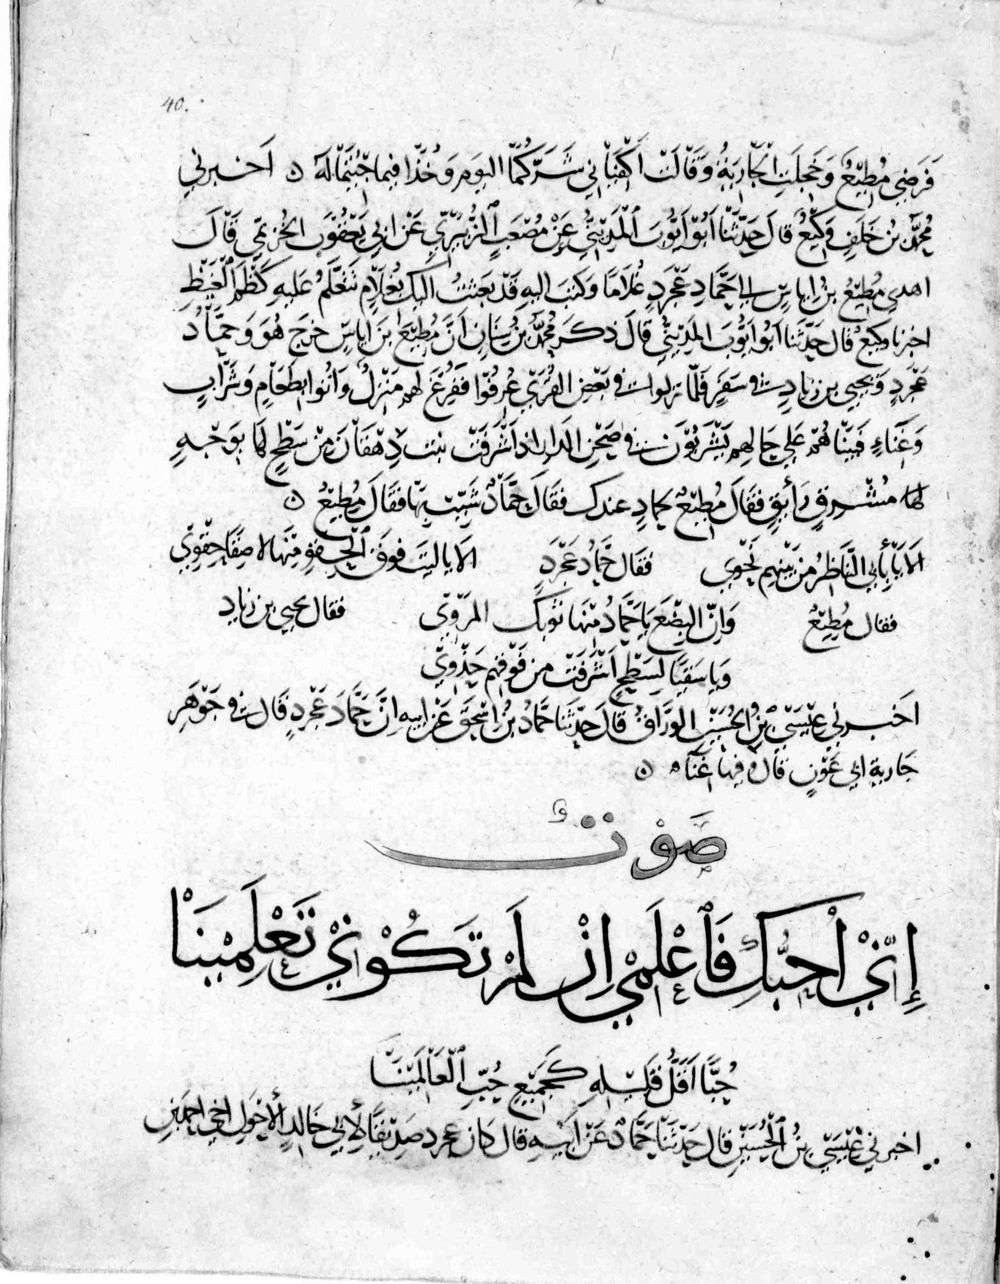 40.
فرضي مُطيعٌ وخجلت الجارية وقالت اكفياني شركما اليوم وخذا فيما جئتما له ه اخبرني
محمد بن خلف وكيع قال حدثنا ابو ايوب المديني عن مصعب الزبيري عن ابي يعقوب الخريمي قال
اهدى مطيع بن اياس الى حماد عجرد غلاما وكتب اليه قد بعثت اليك بغلام تتعلم عليه كظم الغيظ
اخبرنا وكيع قال حدثنا ابو ايوب المديني قال ذكر محمد بن سنان ان مطيع بن اياس خرج هو وحماد
عجرد ويحيى بن زياد في سفر فلما نزلوا في بعض القرى عرفوا ففرغ لهم منزل واتوا بطعام وشراب
وغناء فبينا هم على حالهم يشربون في صحن الدار اذ اشرفت بنت دهقان من سطح لها بوجه
لها مشرق رائق فقال مطيع لحماد عندك فقال حماد شبب بها فقال مطيع ه
الا يا بابي الناظر من بينهم نحوي فقال حماد عجرد الا يا ليت فوق الحقو منها لاصقا حقوي
فقال مطيع وان البضع يا حماد منها ثوبك المروي فقال يحيى بن زياد
ويا سقيا لسطح اشرفت من فوقهم حذوي
اخبرني عيسى بن الحسين الوراق قال حدثنا حماد بن اسحق عن ابيه ان حماد عجرد قال في جوهر
جارية ابي عون قال وفيها غناء ه
صَوْتٌ
إِنِّي أُحِبُّكِ فَاعْلَمْي إِنْ لَمْ تَكُوْنِيْ تَعْلَمِيْنَا
حُبًّا اَقَلُّ قَلِيْلِهِ كَجَمِيْعِ حُبِّ الْعَالَمِيْنَا
اخبرني عيسى بن الحسين قال حدثنا حماد عن ابيه قال كان عجرد صديقا لأبي خالد الاحول اخي احمد بن